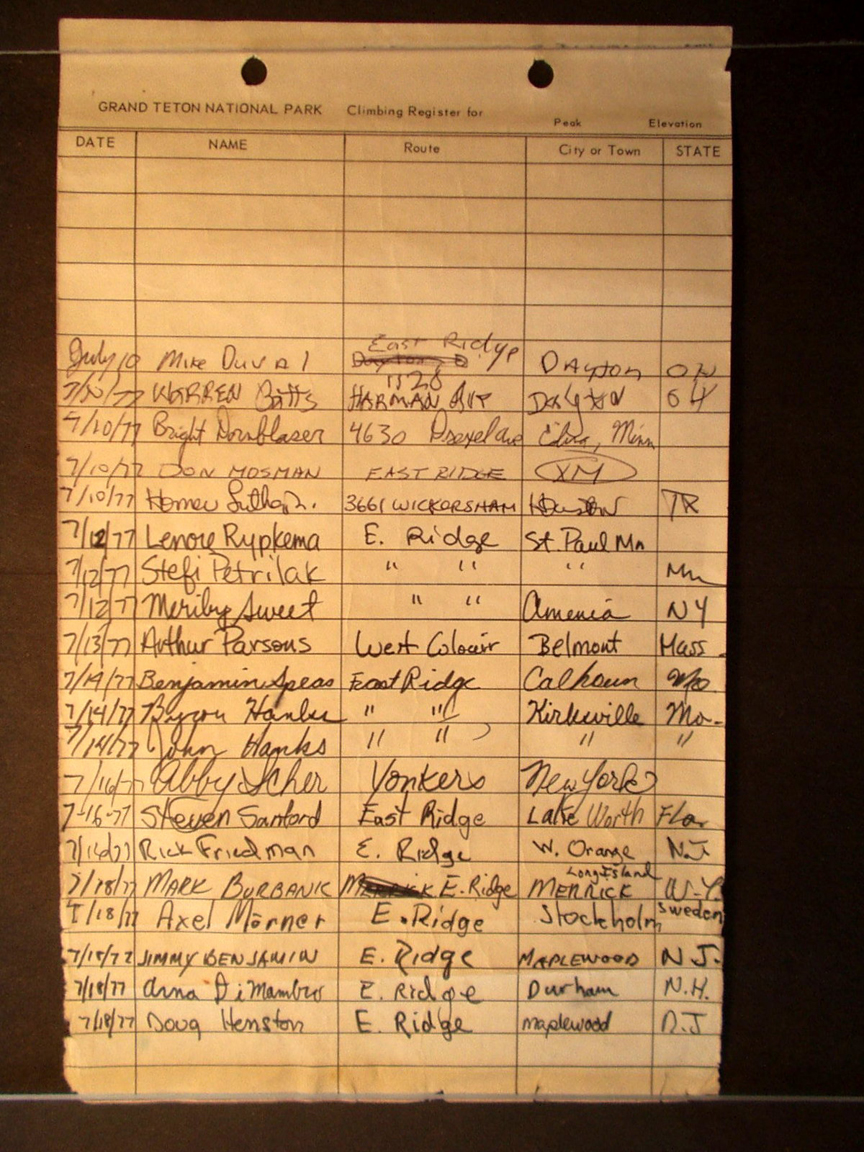 GRAND TETON NATIONAL PARK Climbing Register for Peak Elevation
DATE NAME Route City or Town STATE
July 10 Mike Duval East Ridge Dayton OH
7/10/77 WARREN Batts 1528 HARMAN AVE Dayton OH
7/10/77 Bright Dornblaser 4630 Drexel ave Edina, Minn
7/10/77 DON MOSMAN EAST RIDGE XM
7/10/77 Homer 3661 WICKERSHAM Houston
7/12/77 Lenore Rypkema E. Ridge St. Paul Mn
7/12/77 Stefi Petrilak " " " Mn
7/12/77 Meriby Sweet " " Amenia NY
7/13/77 Arthur Parsons West Belmont Mass.
7/14/77 Benjamin Speas East Ridge Calhoun Mo.
7/14/77 Byron Hanks " " Kirksville Mo.
7/14/77 John Hanks " " " "
7/16/77 Abby Scher Yonkers New York
7-16-77 Steven Sanford East Ridge Lake Worth Fla.
7/16/77 Rick Friedman E. Ridge W. Orange N.J.
7/18/77 MARK BURBANK E. Ridge MERRICK Long Island N.Y.
7/18/77 Axel Mörner E. Ridge Stockholm Sweden
7/18/77 JIMMY BENJAMIN E. Ridge MAPLEWOOD N.J.
7/18/77 Anna DiMambro E. Ridge Durham N.H.
7/18/77 Doug Henston E. Ridge maplewood N.J